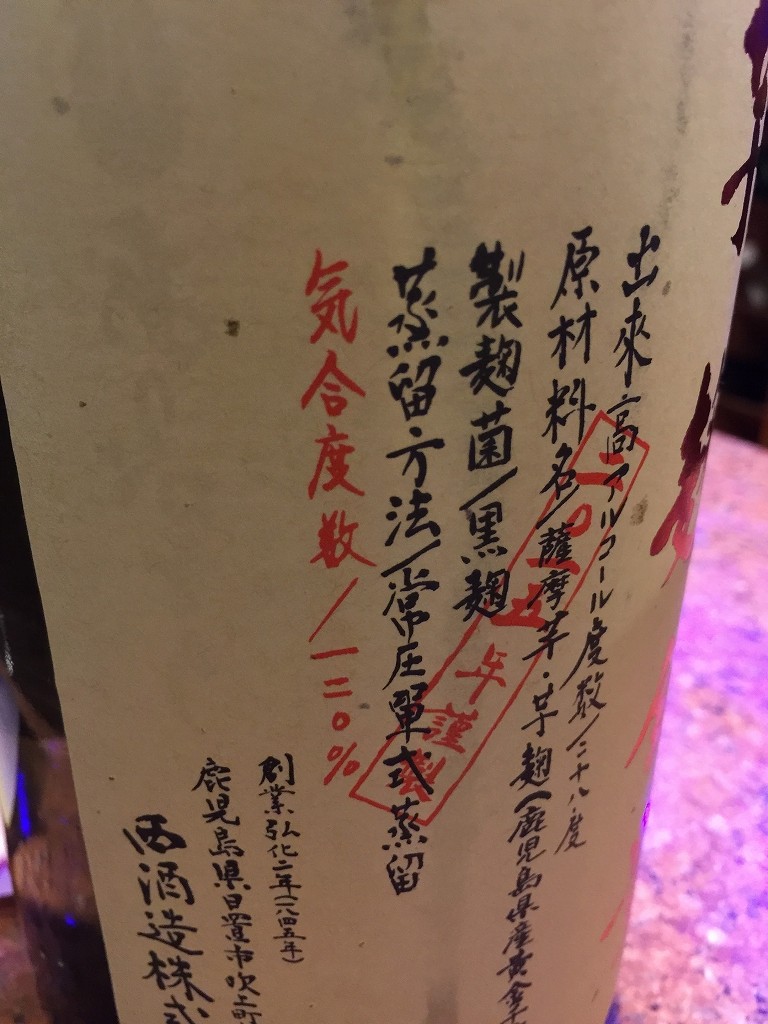 出來高アルコール度数/二十八度
原材料名/薩摩芋・芋麹(鹿児島県産黄金千
製麹菌/黒麹
蒸留方法/常圧單式蒸留
気合度数/一二〇%
二〇一五年謹製
創業弘化二年(一八四五年)
鹿児島県日置市吹上町
西酒造株式